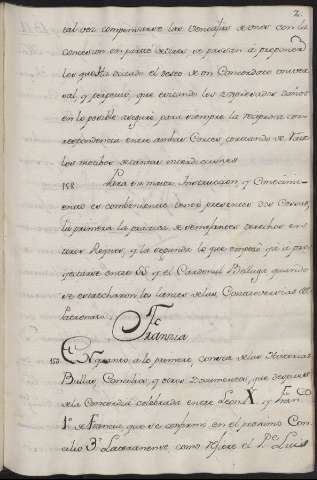 2.
tal vez compensarse las ventajas de unos con la
concesion en parte de otros se pasan a proponer
los que ha dictado el deseo de un Concordato univer
sal, y perpetuo, que evitando los expresados daños
en lo posible asegure para siempre la reciproca cor-
respondencia entre ambas Cortes, cortando de raiz
los motibos de tantas
158. Para su maior Instruccion y Conocimi-
ento es combeniente tener presentes dos Cosas,
la primera la practica de semejantes derechos en o-
tros Reynos, y la segunda lo que empezó ya a pro-
yectarse entre SS. y el Cardenal Belluga quando
se entablaron los
Patronato.
Francia
159. En quanto a lo primero, consta de las
Bullas, Concilios, y otros Documentos, que despues
de la Concordia celebrada entre Leon X y Fran.co
1.º de Francia que se confirmó en el proximo Con-
cilio 3.º Lateranense, como refiere el P.e Luis